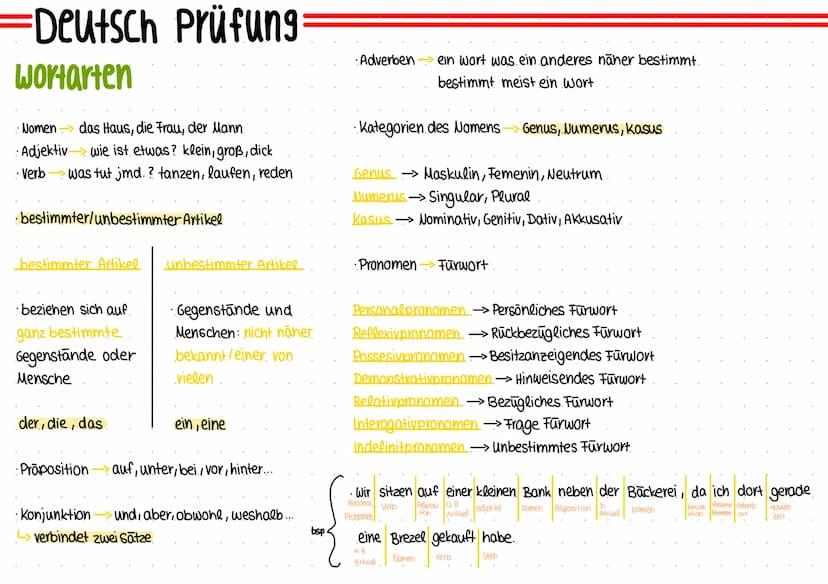 Deutsch Prüfung
Wortarten
· Nomen → das Haus, die Frau, der Mann
· Adjektiv → wie ist etwas? klein, groß, dick
· Verb → was tut jmd.? tanzen, laufen, reden
· bestimmter/unbestimmter Artikel
bestimmter Artikel
· beziehen sich auf
ganz bestimmte
Gegenstände oder
Mensche
der, die, das
unbestimmter Artikel
· Gegenstände und
Menschen: nicht näher
bekannt/einer von
vielen
ein, eine
· Präposition → auf, unter, bei, vor, hinter...
· Konjunktion → und, aber, obwohl, weshalb...
↳ verbindet zwei Sätze
· Adverben → ein Wort was ein anderes näher bestimmt
bestimmt meist ein Wort
· Kategorien des Nomens → Genus, Numerus, Kasus
Genus → Maskulin, Femenin, Neutrum
Numerus → Singular, Plural
Kasus → Nominativ, Genitiv, Dativ, Akkusativ
· Pronomen → Fürwort
Personalpronomen → Persönliches Fürwort
Reflexivpronomen → Rückbezügliches Fürwort
Possesivpronomen → Besitzanzeigendes Fürwort
Demonstrativpronomen → Hinweisendes Fürwort
Relativpronomen → Bezügliches Fürwort
Interogativpronomen → Frage Fürwort
Indefinitpronomen → Unbestimmtes Fürwort
bsp
· Wir | sitzen | auf | einer | kleinen | Bank | neben | der | Bäckerei, | da | ich | dort | gerade
Personal Verb Adjektiv Nomen Präposition Nomen
Pronomen
eine | Brezel | gekauft | habe.
Nomen Verb Verb